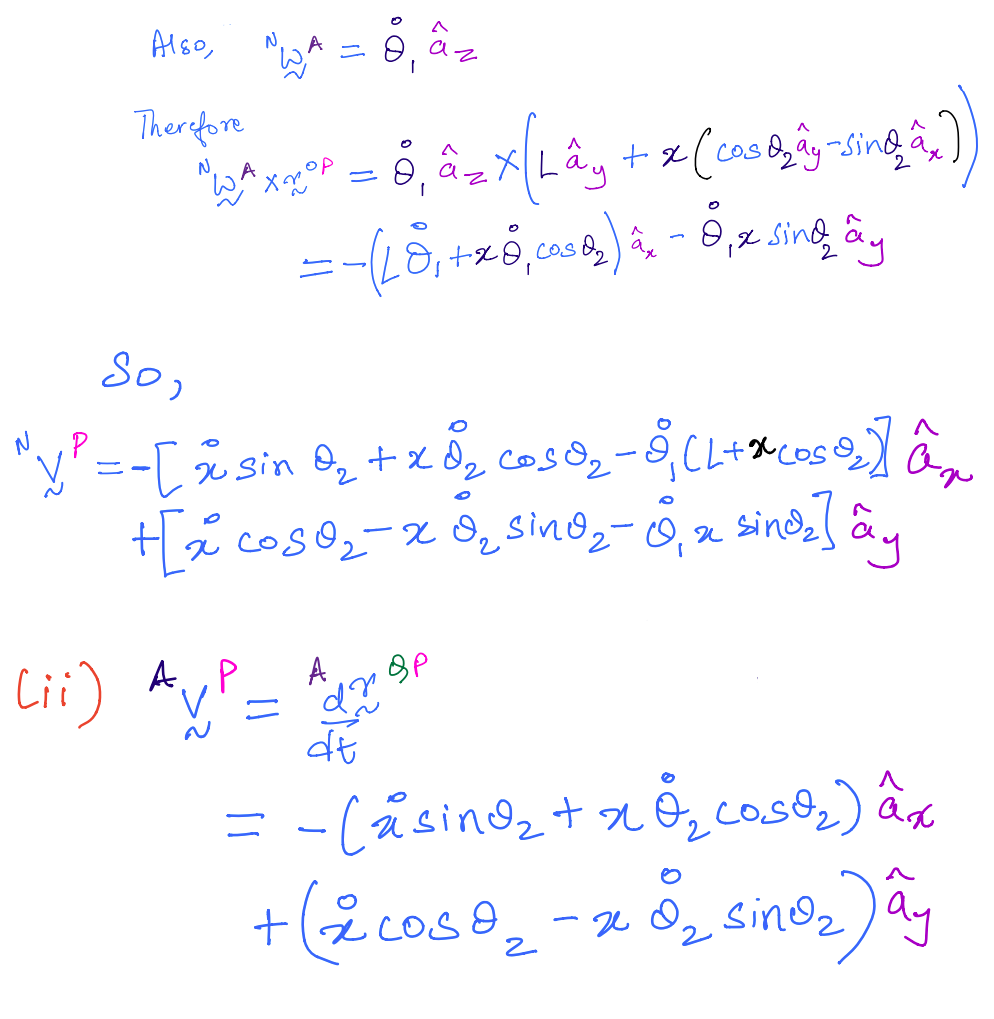 Also, ᴺω̰ᴬ = θ̊₁ â_z
Therefore
ᴺω̰ᴬ × r̰ᴼᴾ = θ̊₁ â_z × (L â_y + x (cosθ₂ â_y - sinθ₂ â_x))
= -(L θ̊₁ + x θ̊₁ cosθ₂) â_x - θ̊₁ x sinθ₂ â_y
So,
ᴺV̰ᴾ = -[x̊ sin θ₂ + x θ̊₂ cosθ₂ - θ̊₁ (L + x cosθ₂)] â_x
+ [x̊ cosθ₂ - x θ̊₂ sinθ₂ - θ̊₁ x sinθ₂] â_y
(ii) ᴬV̰ᴾ = ᴬd r̰^{QP} / dt
= -(x̊ sinθ₂ + x θ̊₂ cosθ₂) â_x
+ (x̊ cosθ₂ - x θ̊₂ sinθ₂) â_y